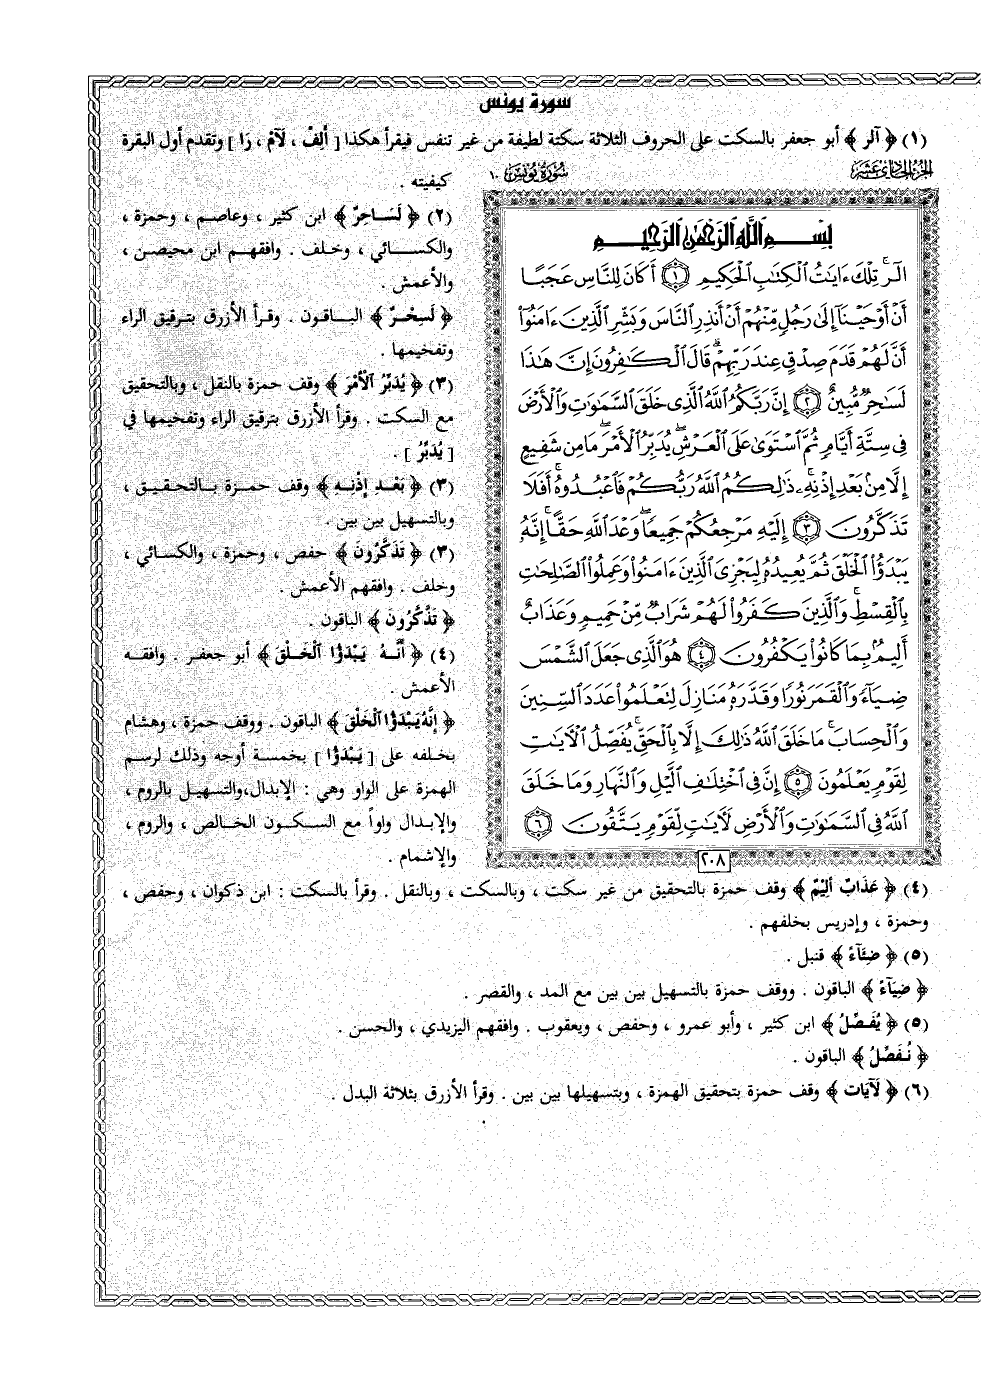 سورة يونس
(١) ﴿ الر ﴾ أبو جعفر بالسكت على الحروف الثلاثة سكتة لطيفة من غير تنفس فيقرأ هكذا [ أَلِفْ ، لَآمْ ، رَا ] وتقدم أول البقرة
كيفيته .
(٢) ﴿ لَسَاحِرٌ ﴾ ابن كثير ، وعاصم ، وحمزة ،
والكسائي ، وخلف . وافقهم ابن محيصن ،
والأعمش .
﴿ لَسِحْرٌ ﴾ الباقون . وقرأ الأزرق بترقيق الراء
وتفخيمها .
(٣) ﴿ يُدَبِّرُ الْأَمْرَ ﴾ وقف حمزة بالنقل ، وبالتحقيق
مع السكت . وقرأ الأزرق بترقيق الراء وتفخيمها في
[ يُدَبِّرُ ] .
(٣) ﴿ بَعْدِ إِذْنِهِ ﴾ وقف حمزة بالتحقيق ،
وبالتسهيل بين بين .
(٣) ﴿ تَذَكَّرُونَ ﴾ حفص ، وحمزة ، والكسائي ،
وخلف . وافقهم الأعمش .
﴿ تَذَّكَّرُونَ ﴾ الباقون .
(٤) ﴿ أَنَّهُ يَبْدَؤُا الْخَلْقَ ﴾ أبو جعفر . وافقه
الأعمش .
﴿ إِنَّهُ يَبْدَؤُا الْخَلْقَ ﴾ الباقون . ووقف حمزة ، وهشام
بخلفه على [ يَبْدَؤُا ] بخمسة أوجه وذلك لرسم
الهمزة على الواو وهي : الإبدال،والتسهيل بالروم ،
والإبدال واواً مع السكون الخالص ، والروم ،
والإشمام .
الجزء الحادي عشر
سورة يونس ١٠
بِسْمِ اللَّهِ الرَّحْمَٰنِ الرَّحِيمِ
الٓر ۚ تِلْكَ ءَايَٰتُ الْكِتَٰبِ الْحَكِيمِ ۝١ أَكَانَ لِلنَّاسِ عَجَبًا
أَنْ أَوْحَيْنَآ إِلَىٰ رَجُلٍ مِّنْهُمْ أَنْ أَنذِرِ النَّاسَ وَبَشِّرِ الَّذِينَ ءَامَنُوٓا
أَنَّ لَهُمْ قَدَمَ صِدْقٍ عِندَ رَبِّهِمْ ۗ قَالَ الْكَٰفِرُونَ إِنَّ هَٰذَا
لَسَٰحِرٌ مُّبِينٌ ۝٢ إِنَّ رَبَّكُمُ اللَّهُ الَّذِى خَلَقَ السَّمَٰوَٰتِ وَالْأَرْضَ
فِى سِتَّةِ أَيَّامٍ ثُمَّ اسْتَوَىٰ عَلَى الْعَرْشِ ۖ يُدَبِّرُ الْأَمْرَ ۖ مَا مِن شَفِيعٍ
إِلَّا مِنۢ بَعْدِ إِذْنِهِۦ ۚ ذَٰلِكُمُ اللَّهُ رَبُّكُمْ فَاعْبُدُوهُ ۚ أَفَلَا
تَذَكَّرُونَ ۝٣ إِلَيْهِ مَرْجِعُكُمْ جَمِيعًا ۖ وَعْدَ اللَّهِ حَقًّا ۚ إِنَّهُۥ
يَبْدَؤُا الْخَلْقَ ثُمَّ يُعِيدُهُۥ لِيَجْزِىَ الَّذِينَ ءَامَنُوا وَعَمِلُوا الصَّٰلِحَٰتِ
بِالْقِسْطِ ۚ وَالَّذِينَ كَفَرُوا لَهُمْ شَرَابٌ مِّنْ حَمِيمٍ وَعَذَابٌ
أَلِيمٌۢ بِمَا كَانُوا يَكْفُرُونَ ۝٤ هُوَ الَّذِى جَعَلَ الشَّمْسَ
ضِيَآءً وَالْقَمَرَ نُورًا وَقَدَّرَهُۥ مَنَازِلَ لِتَعْلَمُوا عَدَدَ السِّنِينَ
وَالْحِسَابَ ۚ مَا خَلَقَ اللَّهُ ذَٰلِكَ إِلَّا بِالْحَقِّ ۚ يُفَصِّلُ الْءَايَٰتِ
لِقَوْمٍ يَعْلَمُونَ ۝٥ إِنَّ فِى اخْتِلَٰفِ الَّيْلِ وَالنَّهَارِ وَمَا خَلَقَ
اللَّهُ فِى السَّمَٰوَٰتِ وَالْأَرْضِ لَءَايَٰتٍ لِّقَوْمٍ يَتَّقُونَ ۝٦
٢٠٨
(٤) ﴿ عَذَابٌ أَلِيمٌ ﴾ وقف حمزة بالتحقيق من غير سكت ، وبالسكت ، وبالنقل . وقرأ بالسكت : ابن ذكوان ، وحفص ،
وحمزة ، وإدريس بخلفهم .
(٥) ﴿ ضِئَآءً ﴾ قنبل .
﴿ ضِيَآءً ﴾ الباقون . ووقف حمزة بالتسهيل بين بين مع المد ، والقصر .
(٥) ﴿ يُفَصِّلُ ﴾ ابن كثير ، وأبو عمرو ، وحفص ، ويعقوب . وافقهم اليزيدي ، والحسن .
﴿ نُفَصِّلُ ﴾ الباقون .
(٦) ﴿ لَآيَات ﴾ وقف حمزة بتحقيق الهمزة ، وبتسهيلها بين بين . وقرأ الأزرق بثلاثة البدل .